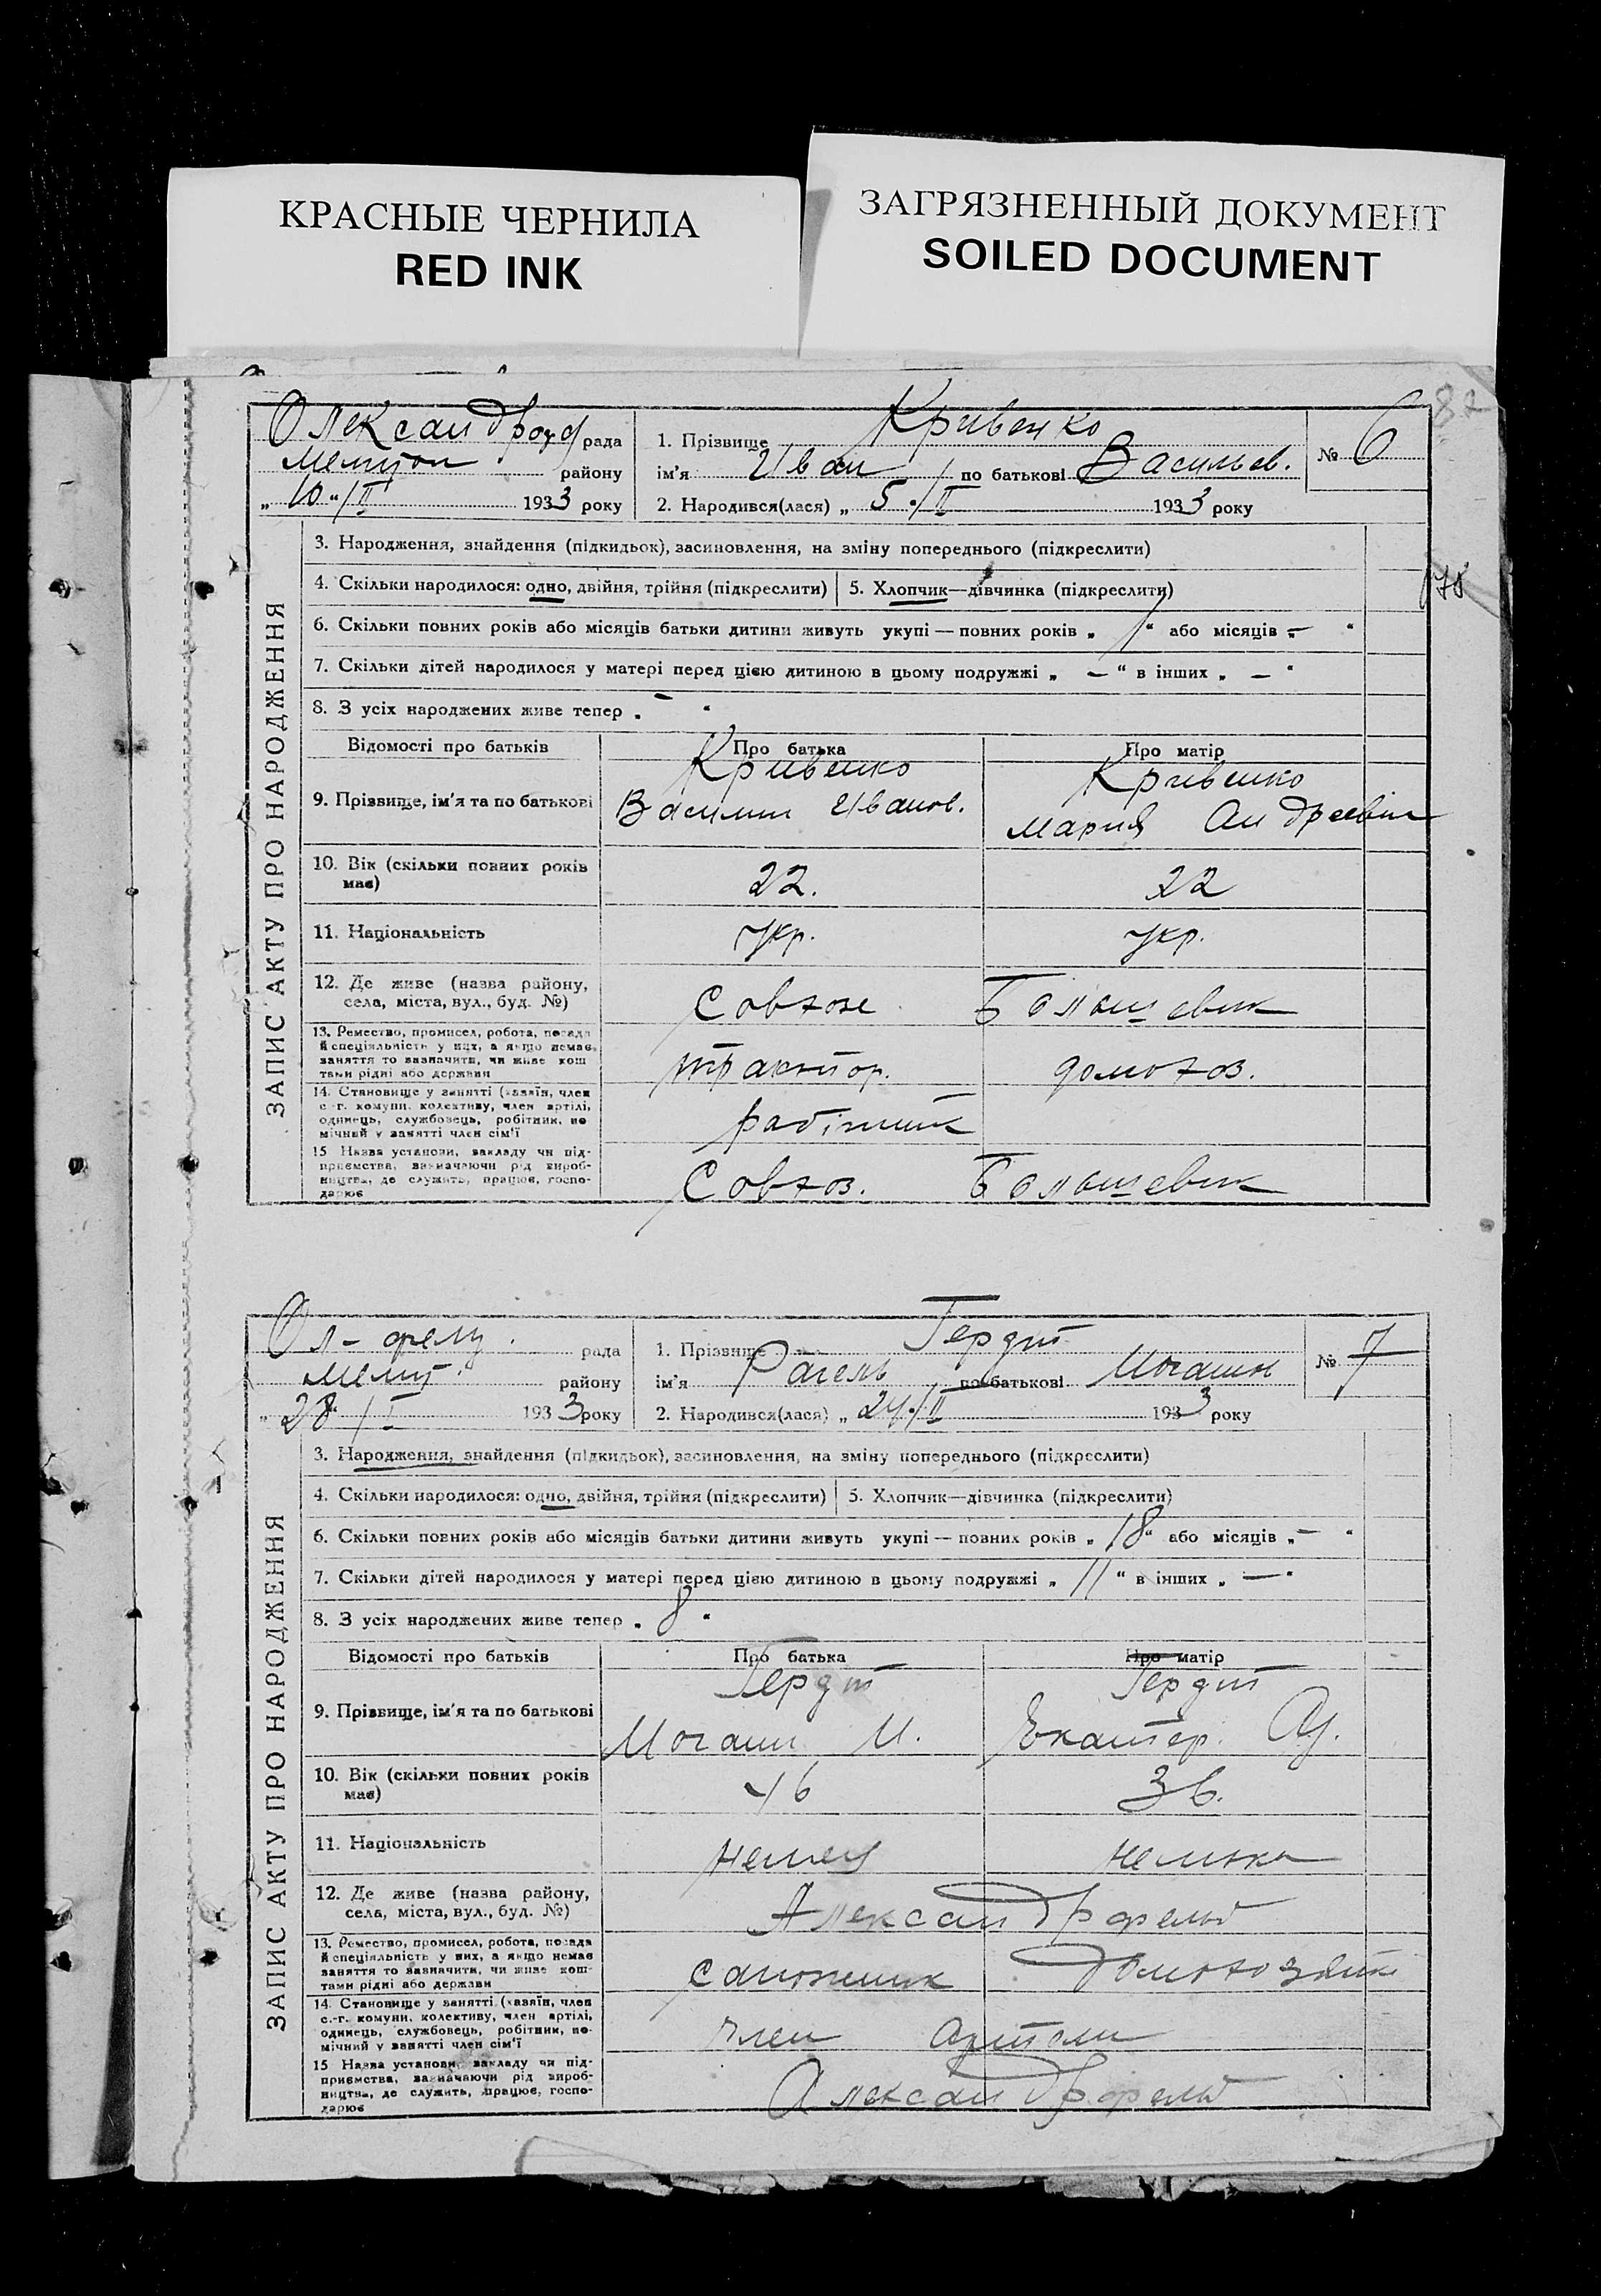 КРАСНЫЕ ЧЕРНИЛА
RED INK
ЗАГРЯЗНЕННЫЙ ДОКУМЕНТ
SOILED DOCUMENT
82
рада
району
„ 10 “ /II 1933 року
1. Прізвище Кривенко
ім’я Иван по батькові Васильев.
2. Народився(лася) „ 5 “ /II 1933 року
№ 6
ЗАПИС АКТУ ПРО НАРОДЖЕННЯ
3. Народження, знайдення (підкидьок), засиновлення, на зміну попереднього (підкреслити)
4. Скільки народилося: одно, двійня, трійня (підкреслити) 5. Хлопчик—дівчинка (підкреслити)
6. Скільки повних років або місяців батьки дитини живуть укупі — повних років „ 1 “ або місяців „ — “
7. Скільки дітей народилося у матері перед цією дитиною в цьому подружжі „ — “ в інших „ — “
8. З усіх народжених живе тепер „ — “
Відомості про батьків Про батька Про матір
9. Прізвище, ім’я та по батькові
Кривенко
Василий Иванов.
Кривенко
Мария Андреевн
10. Вік (скільки повних років має)
22. 22
11. Національність укр. укр.
12. Де живе (назва району, села, міста, вул., буд. №)
Совхозе Большевик
13. Ремество, промисел, робота, посада й спеціяльність у них, а якщо немає заняття то зазначити, чи живе кош тами рідні або держави
трактор. домохоз.
14. Становище у занятті (хазяїн, член с.-г. комуни, колективу, член артілі, одинець, службовець, робітник, помічний у занятті член сім’ї
робітник
15 Назва установи, закладу чи підприємства, зазначаючи рід виробництва, де служить, працює, господарює
Совхоз. Большевик
рада
району
„ 28 “ /I 1933 року
1. Прізвище Гердт
ім’я по батькові
2. Народився(лася) „ 24 “ /II 1933 року
№ 7
ЗАПИС АКТУ ПРО НАРОДЖЕННЯ
3. Народження, знайдення (підкидьок), засиновлення, на зміну попереднього (підкреслити)
4. Скільки народилося: одно, двійня, трійня (підкреслити) 5. Хлопчик—дівчинка (підкреслити)
6. Скільки повних років або місяців батьки дитини живуть укупі — повних років „ 18 “ або місяців „ — “
7. Скільки дітей народилося у матері перед цією дитиною в цьому подружжі „ 11 “ в інших „ — “
8. З усіх народжених живе тепер „ 8 “
Відомості про батьків Про батька Про матір
9. Прізвище, ім’я та по батькові
Гердт
И.
Гердт
Екатер.
10. Вік (скільки повних років має)
46 36.
11. Національність немец немка
12. Де живе (назва району, села, міста, вул., буд. №)
Александрфельд
13. Ремество, промисел, робота, посада й спеціяльність у них, а якщо немає заняття то зазначити, чи живе коштами рідні або держави
сапожник
14. Становище у занятті (хазяїн, член с.-г. комуни, колективу, член артілі, одинець, службовець, робітник, помічний у занятті член сім’ї
член Артели
15 Назва установи, закладу чи підприємства, зазначаючи рід виробництва, де служить, працює, господарює
Александрфельд